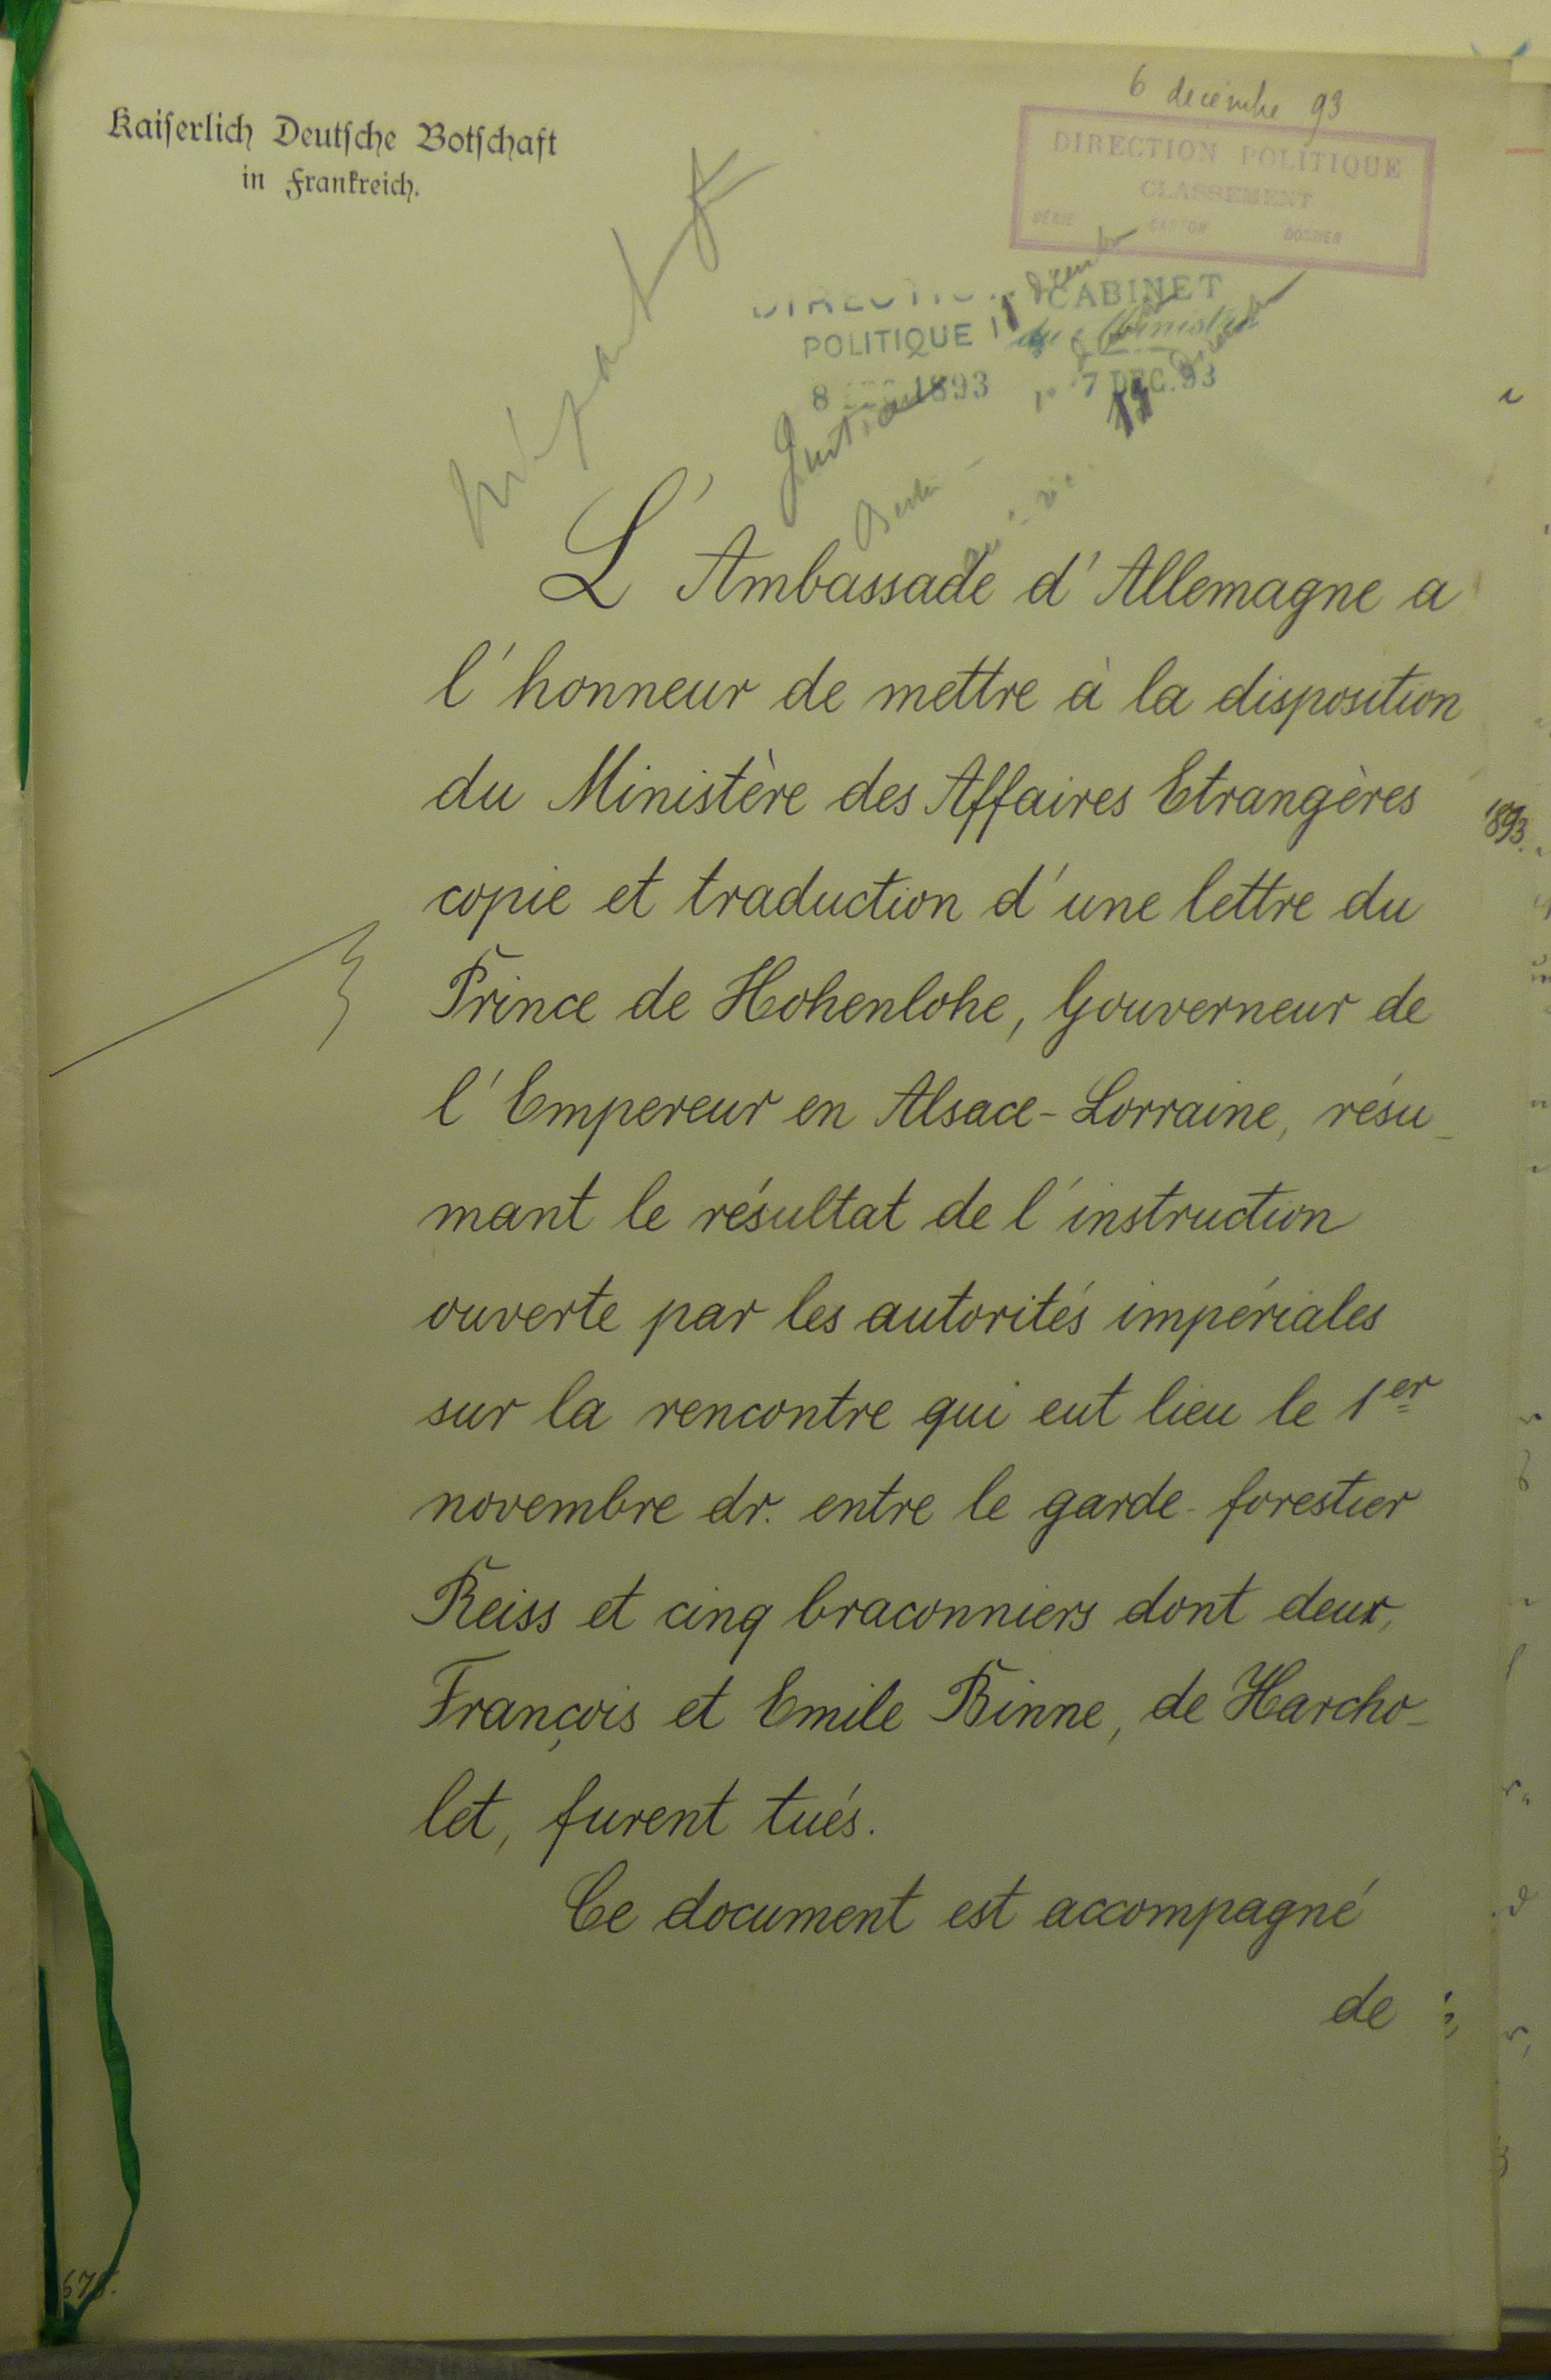 Kaiserlich Deutsche Botschaft
in Frankreich.
6 décembre 93
DIRECTION POLITIQUE
CLASSEMENT
SÉRIE CARTON DOSSIER
DIRECTION
POLITIQUE
8 1893
CABINET
du Ministre
7 DEC. 93
11
Berlin
L'Ambassade d'Allemagne a
l'honneur de mettre à la disposition
du Ministère des Affaires Etrangères
copie et traduction d'une lettre du
Prince de Hohenlohe, Gouverneur de
l'Empereur en Alsace-Lorraine, résu-
mant le résultat de l'instruction
ouverte par les autorités impériales
sur la rencontre qui eut lieu le 1er
novembre dr. entre le garde-forestier
Reiss et cinq braconniers dont deux,
François et Emile Binne, de Harcho-
let, furent tués.
Ce document est accompagné
de
1893.